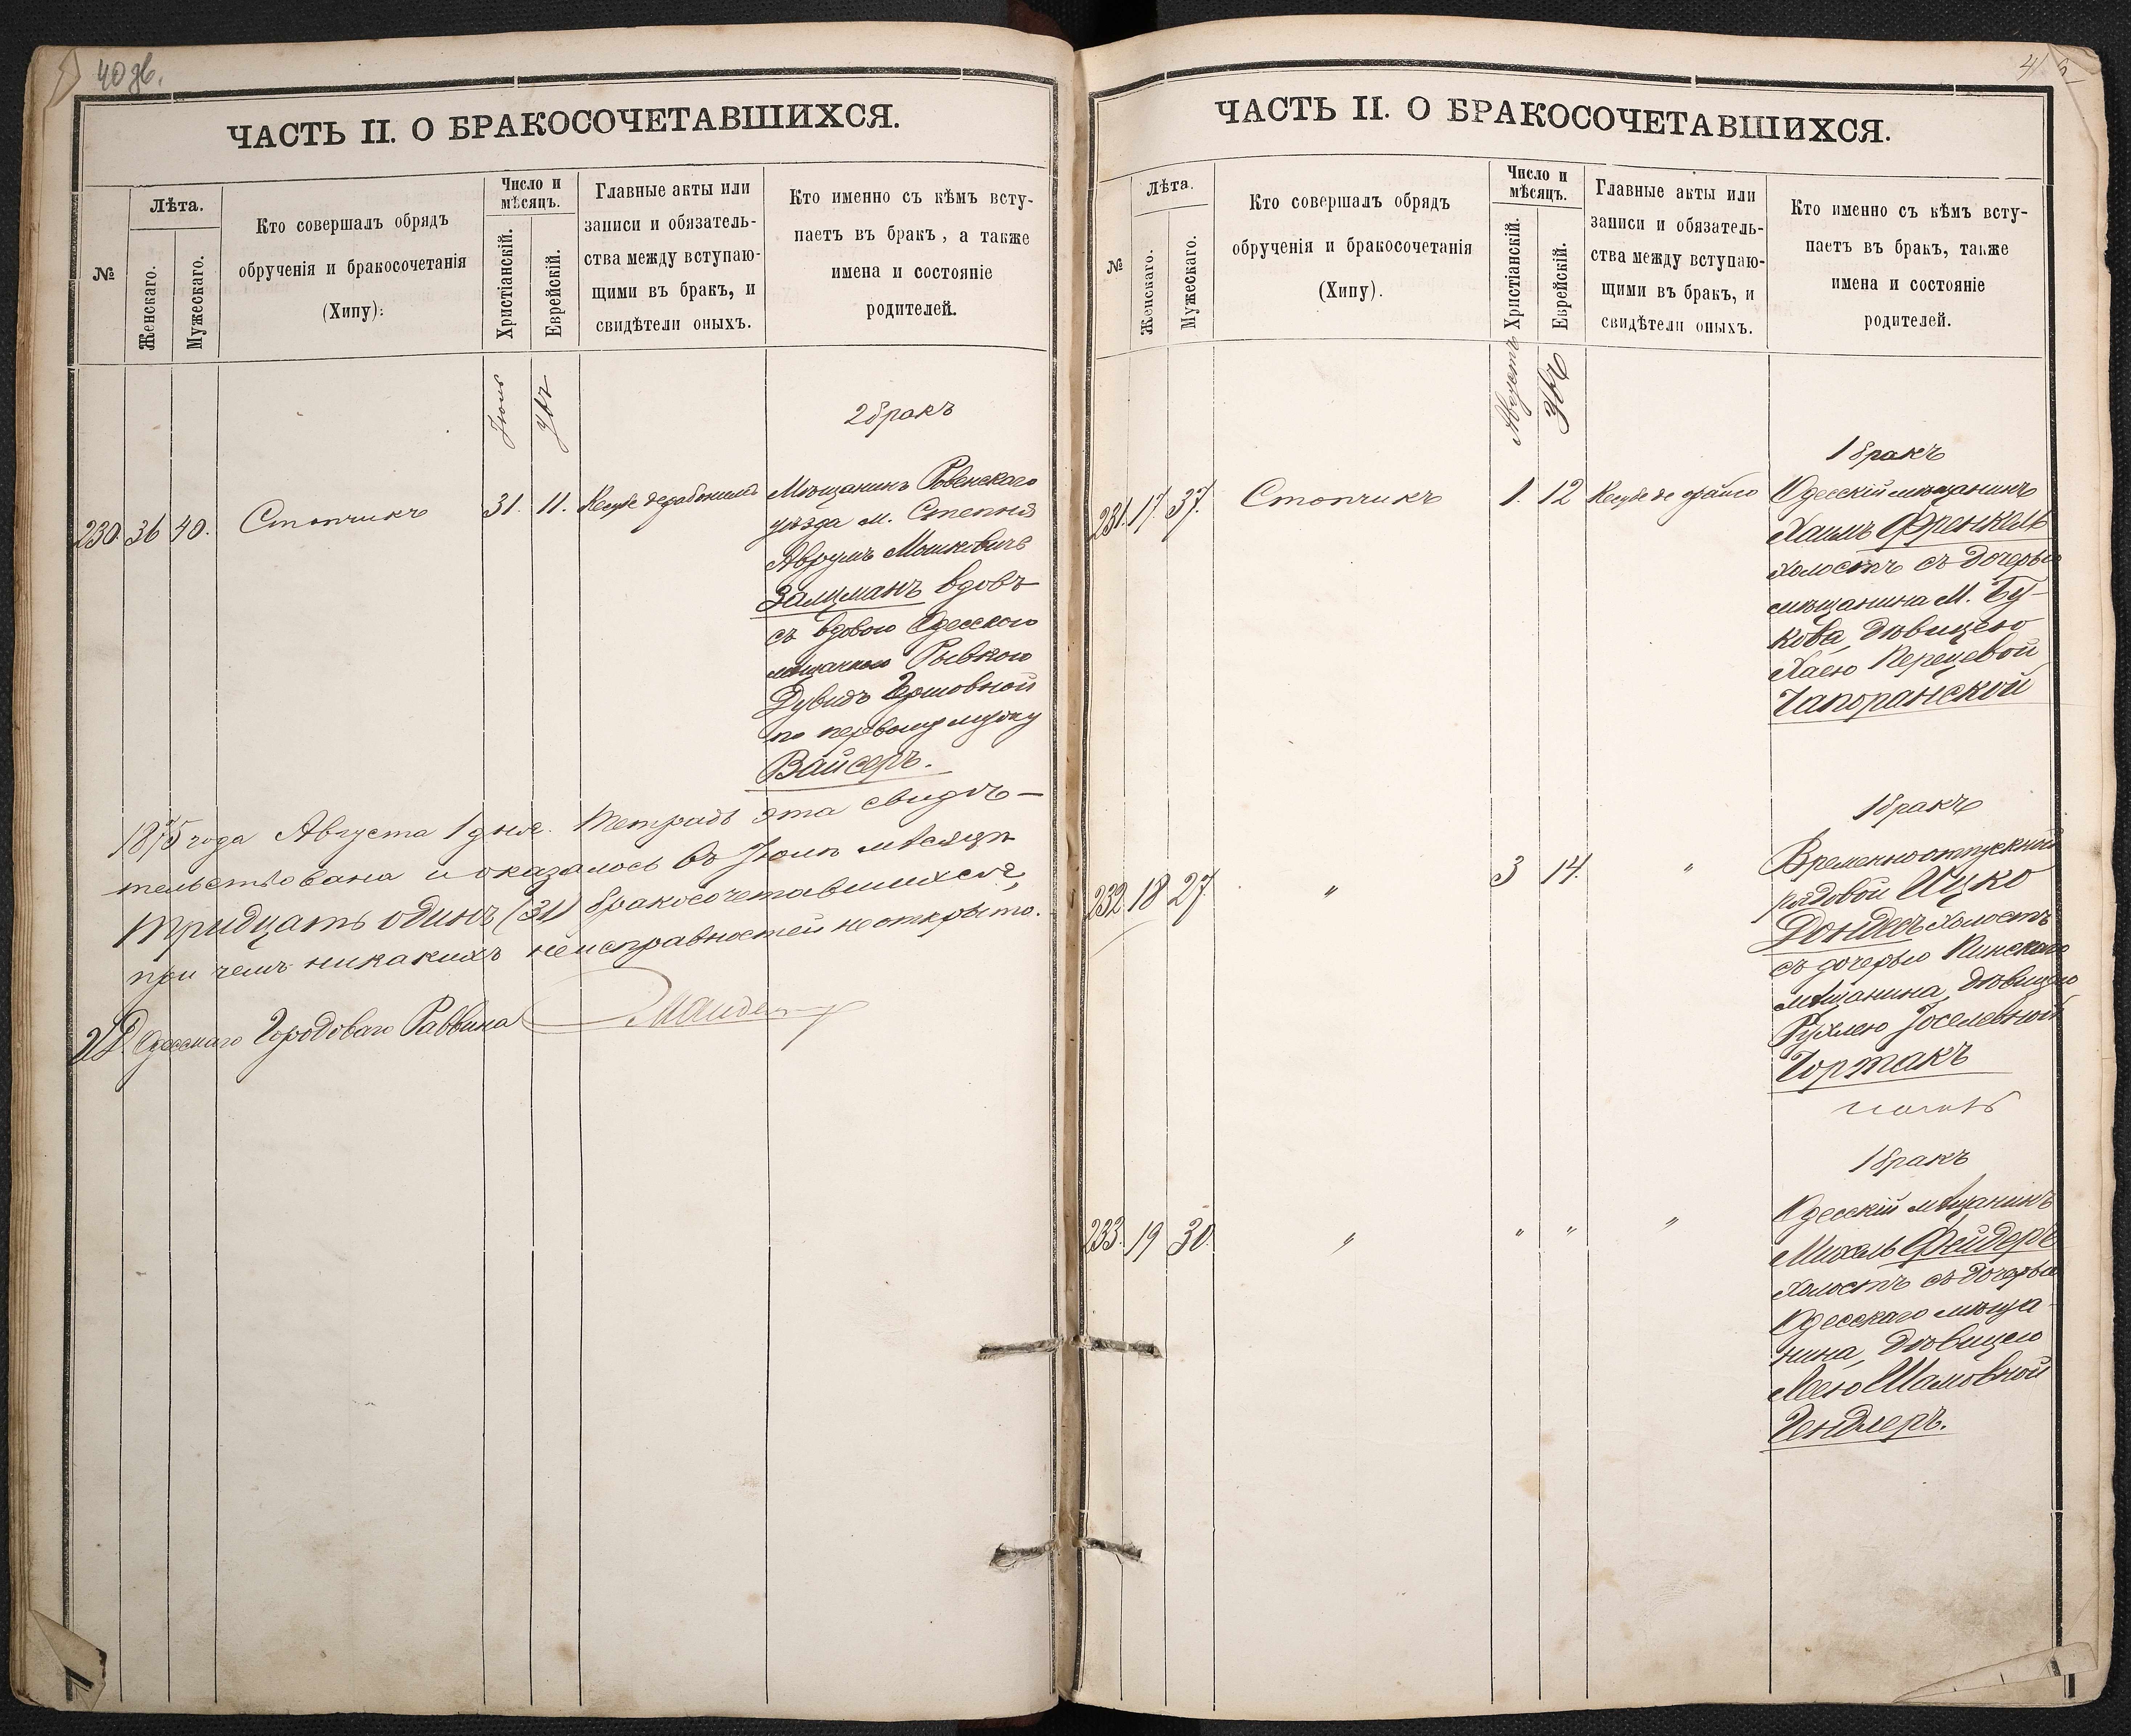 40 об.
ЧАСТЬ II. О БРАКОСОЧЕТАВШИХСЯ.
№
Лѣта.
Женскаго.
Мужескаго.
Кто совершалъ обрядъ
обрученія и бракосочетанія
(Хипу):
Число и
мѣсяцъ.
Христіанскій.
Еврейскій.
Главные акты или
записи и обязатель-
ства между вступаю-
щими въ бракъ, и
свидѣтели оныхъ.
Кто именно съ кѣмъ всту-
паетъ въ бракъ, а также
имена и состояніе
родителей.
Іюль
2 бракъ
230. 36 40. Столчикъ 31. 11.
Мѣщанинъ Ровенскаго
уѣзда м. Степня
Аврумъ Мошковичъ
Залцманъ вдовъ
съ вдовою Одесскою
мѣщанкою Рывкою
Дувидъ Гершовной
по первому мужу
Вайсеръ.
1875 года Августа 1 дня. Тетрадь эта свидѣ-
тельствована и оказалось въ Іюлѣ мѣсяцѣ
тридцать одинъ (31) бракосочетавшихся,
при чемъ никакихъ неисправностей не открыто.
И.Д. Одесскаго Городоваго Раввина
41
ЧАСТЬ II. О БРАКОСОЧЕТАВШИХСЯ.
№
Лѣта.
Женскаго.
Мужескаго.
Кто совершалъ обрядъ
обрученія и бракосочетанія
(Хипу).
Число и
мѣсяцъ.
Христіанскій.
Еврейскій.
Главные акты или
записи и обязатель-
ства между вступаю-
щими въ бракъ, и
свидѣтели оныхъ.
Кто именно съ кѣмъ всту-
паетъ въ бракъ, также
имена и состояніе
родителей.
Августъ
1 бракъ
231. 17. 37. Столчикъ 1. 12
Одесскій мѣщанинъ
Хаимъ Френкель
холостъ съ дочерью
мѣщанина М. Бу-
кова, дѣвицею
Хаею Перецевой
Чапоранской
1 бракъ
232. 18 27. " 3 14. "
Временноотпускной
рядовой Ицко
Дондесъ холостъ
съ дочерью Пинскаго
мѣщанина, дѣвицею
Рухлею Іоселевной
Гортакъ
1 бракъ
233. 19 30. " " " "
Одесскій мѣщанинъ
Михель Фейдеръ
холостъ съ дочерью
Одесскаго мѣща-
нина, дѣвицею
Леею Шамовной
Гендлеръ.